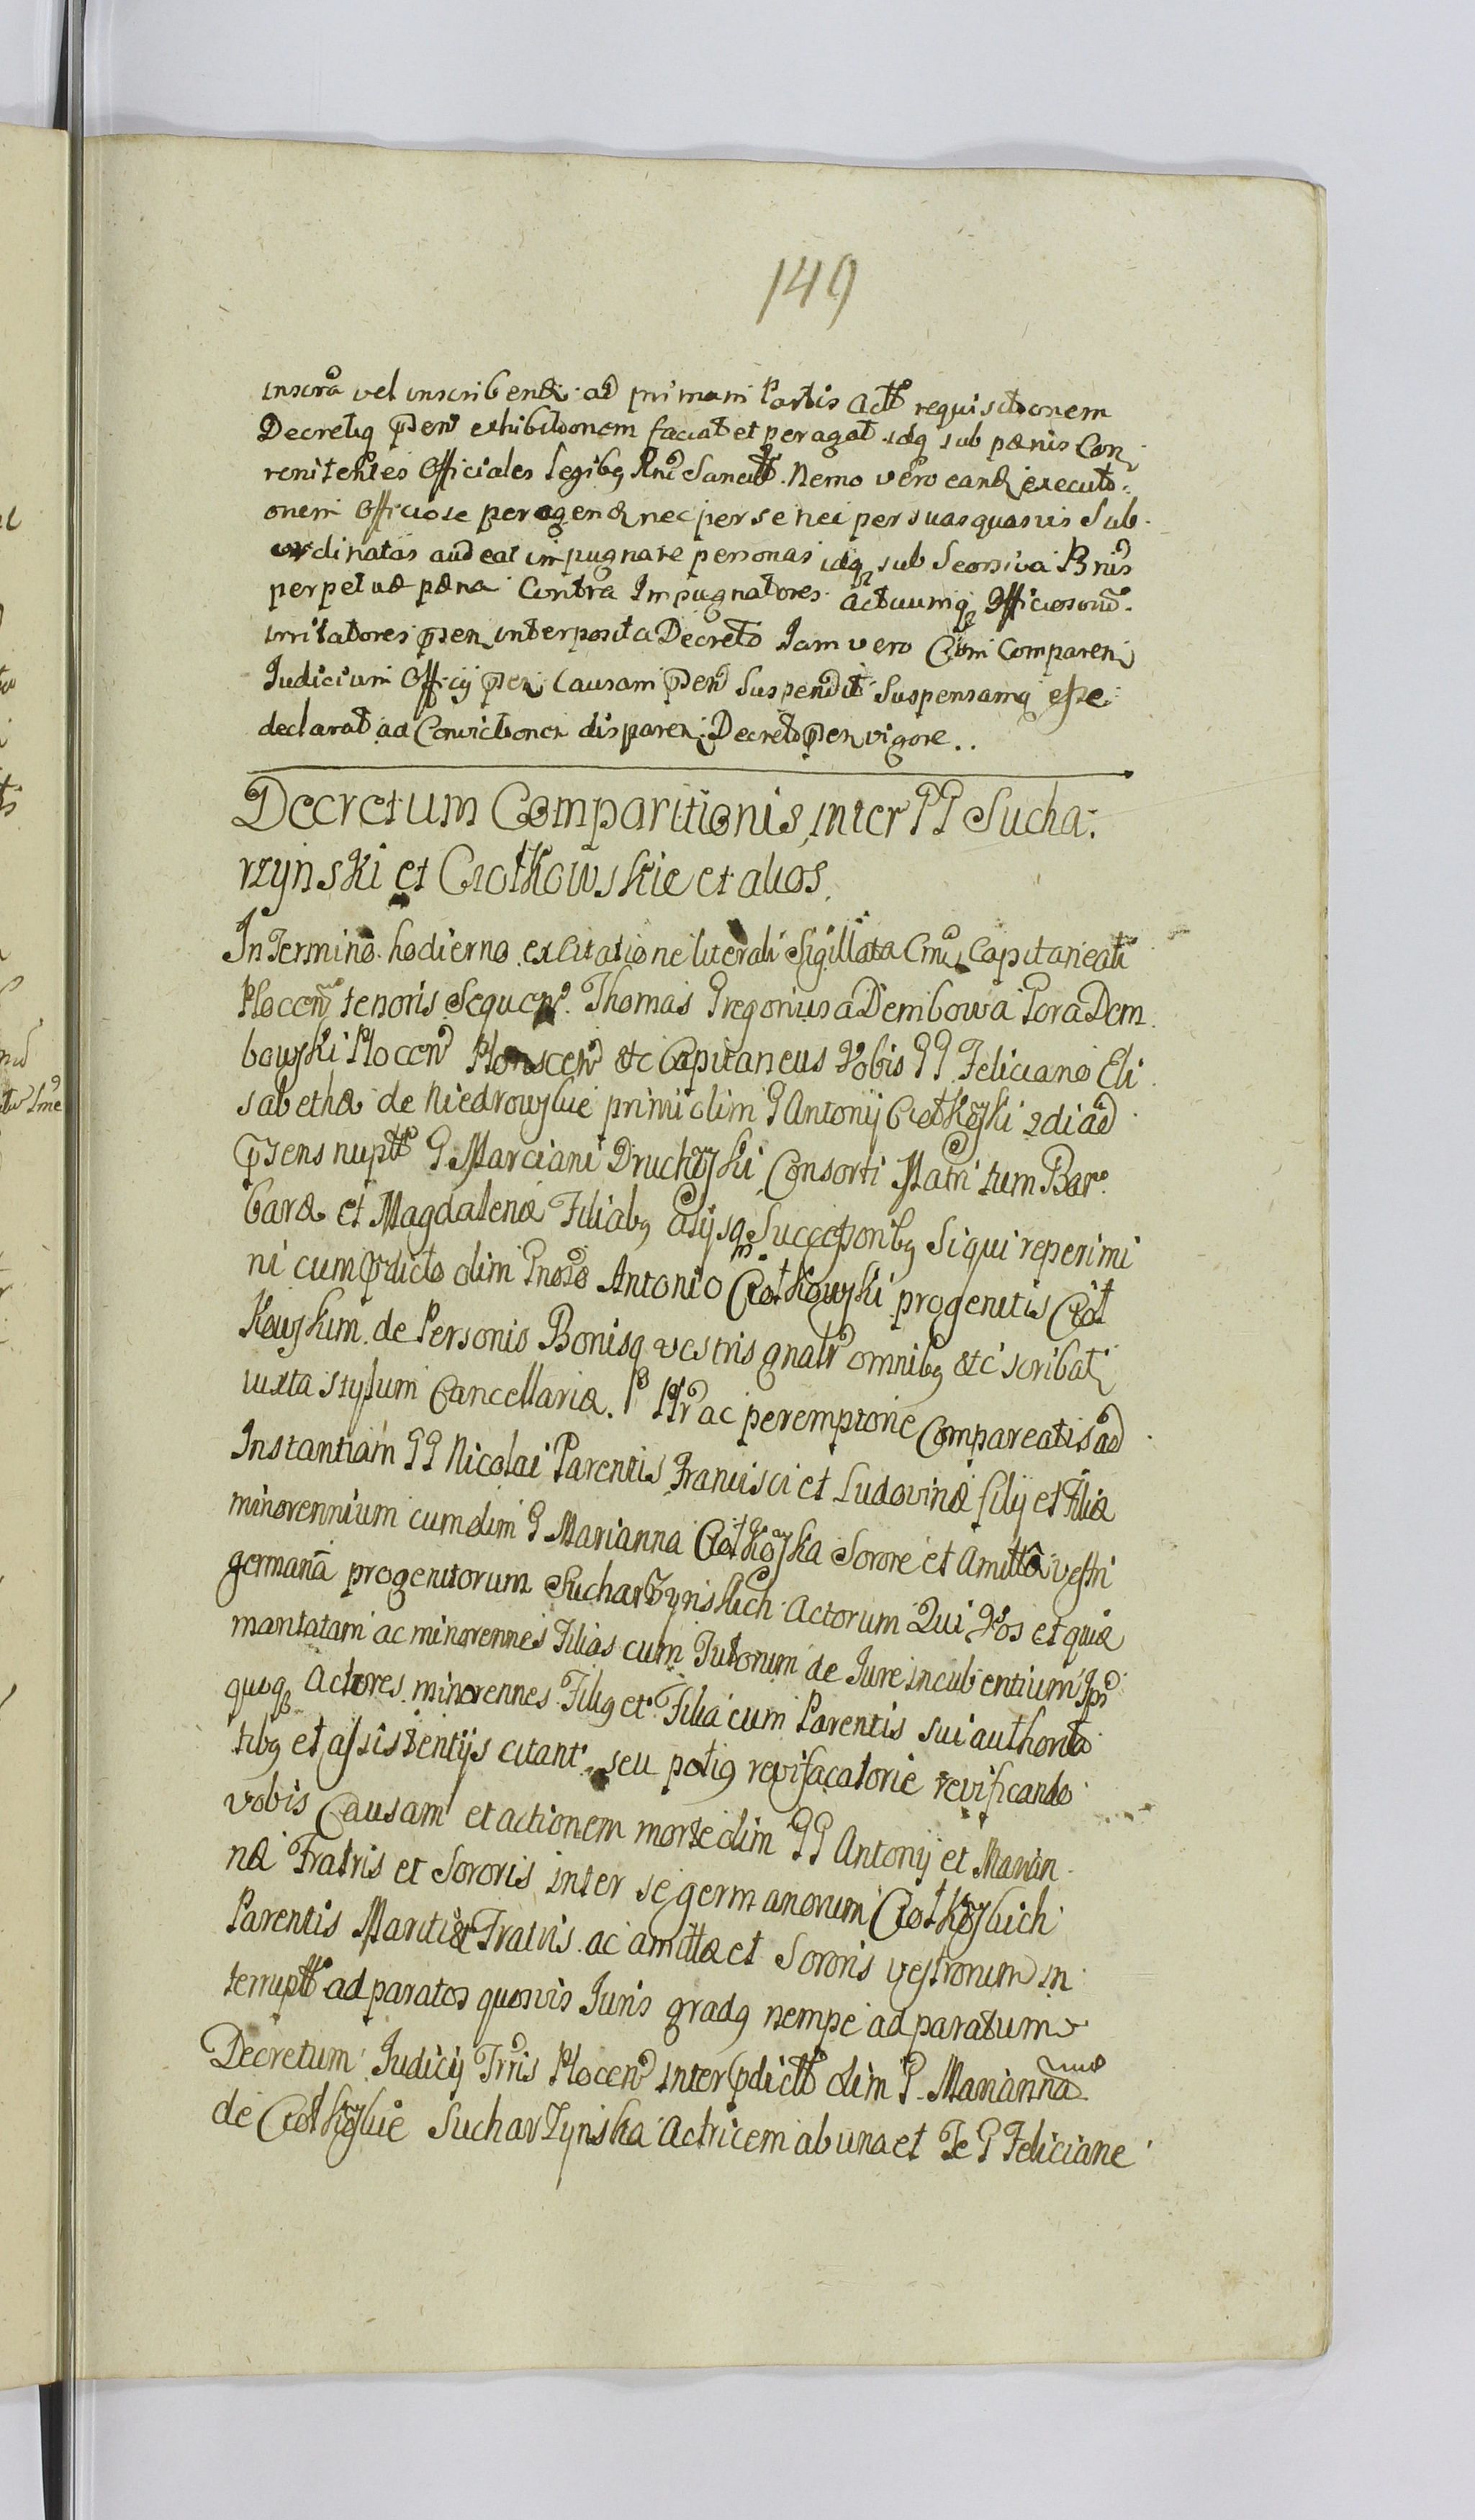 149
inscra vel inscribend ad primam Partis Act requisitionem
Decretiq psen exhibitionem faciat et peragat idq sub pænis Con
renitentes Officiales Legibq Rni Sancit. Nemo vero eand executi
onem Officiose peragend nec per se nec per suas quasvis Sub
ordinatas audeat impugnare personas idq sub Seorsiva Bnis
perpetuæ pæna Contra Impugnatores actuumq Officiosorum
irritatores psen interposita Decreto Iam vero Cum Comparen
Iudicium Officij psen Causam psen Suspendit Suspensamq esse
declarat ad Convictionem disparen Decreto psen vigore..
Decretum Comparitionis inter GG Sucha:
rzynski et Czotkowskie et alios.
In Termino hodierno ex Citatione literali Sigillata Cmi Capitaneati
Plocen tenoris Sequen. Thomas Gregorius a Dembowa Gora Dem
bowski Plocen Plonscen etc Capitaneus Vobis GG Feliciano Eli
sabethæ de Niedrowskie primi olim G Antonij Czotkoski 2di ad
psens nuptæ G Marciani Druchoski Consorti Matri tum Bar
baræ et Magdalenæ Filiabq alijsq Successoribq Siqui reperimi
ni cum pdicto olim Gnoso Antonio Czotkowski progenitis Czot
kowskim de Personis Bonisq vestris gnalr omnibq etc scribat
iuxta stylum Cancellariæ. Ptr ac peremptorie Compareatis ad
Instantiam GG Nicolai Parentis Francisci et Ludovinæ filij et Filiæ
minorennium cum olim G Marianna Czotkoska Sorore et Amitta vestri
germana progenitorum Sucharzynskich Actorum Qui Vos et quia
mantatam ac minorennes Filias cum Tutorum de Iure incubentium Ipi
quoq Actores minorennes Filiq et Filia cum Parentis sui authorita
tibq et assistentijs citant seu potiq revifacatorie revificando
vobis Causam et actionem morte olim GG Antonij et Marian
næ Fratris et Sororis inter se germanorum Czotkoskich
Parentis Mariti et Fratris ac amittæ et Sororis vestrorum in
terrupt ad paratos quosvis Iuris gradq nempe ad paratum
Decretum Iudicij Trris Plocen inter pdict olim G. Mariannam
de Czotkoskie Sucharzynska Actricem ab una et Te G Feliciane